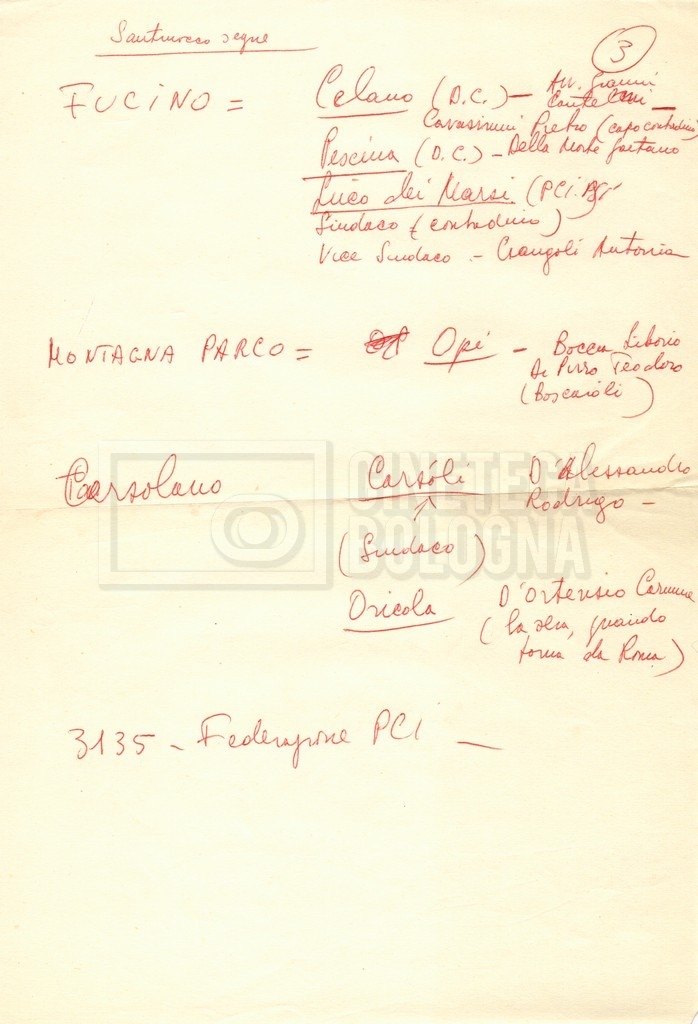 Santmreco segue
3
FUCINO = Celano (D.C.) – Avv. Gianni
Cantelmi –
Cavasinni Pietro (capo contadini)
Pescina (D.C.) – Della Morte Gaetano
Luco dei Marsi (PCI. PSI
Sindaco (contadino)
Vice Sindaco – Ciangoli Antonia
MONTAGNA PARCO = Opi – Boccia Liborio
Di Pirro Teodoro
(Boscaioli)
Carsolano Carsóli D'Alessandro
Rodrigo –
(Sindaco)
Oricola D'Ortensio Carmine
(la sera, quando
torna da Roma)
3135 – Federazione PCI –
CINETECA
BOLOGNA